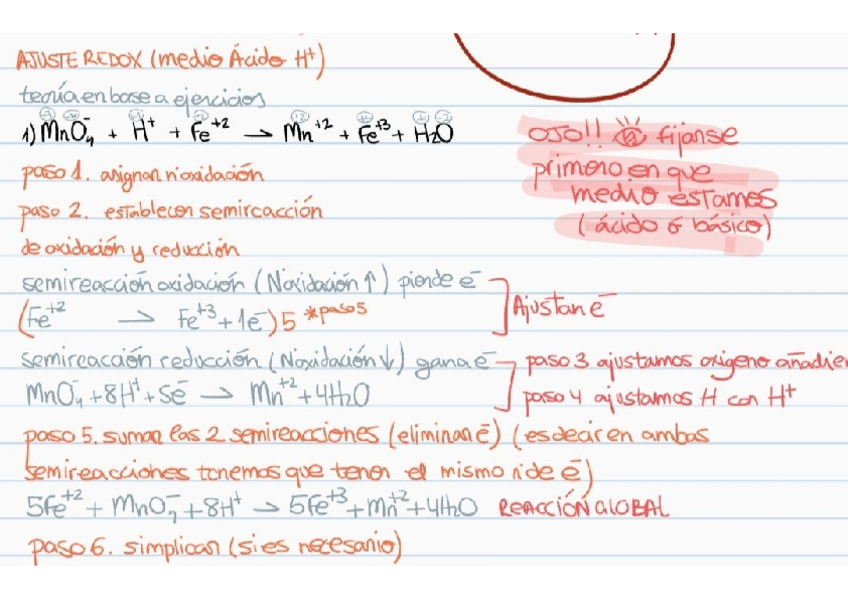 AJUSTE REDOX (medio Ácido H⁺)
teoría en base a ejercicios
1) MnO₄⁻ + H⁺ + Fe⁺² → Mn⁺² + Fe⁺³ + H₂O
OJO!! fijarse
primero en que
medio estamos
(ácido ó básico)
paso 1. asignar nºoxidación
paso 2. establecer semirreacción
de oxidación y reducción
semireacción oxidación (Noxidación ↑) pierde e⁻
(Fe⁺² → Fe⁺³ + 1e⁻) 5 *paso 5
Ajustar e⁻
semireacción reducción (Noxidación ↓) gana e⁻
MnO₄⁻ + 8H⁺ + 5e⁻ → Mn⁺² + 4H₂O
paso 3 ajustamos oxigeno añadien
paso 4 ajustamos H con H⁺
paso 5. sumar las 2 semireacciones (eliminar e⁻) (es decir en ambas
semireacciones tenemos que tener el mismo nº de e⁻)
5Fe⁺² + MnO₄⁻ + 8H⁺ → 5Fe⁺³ + Mn⁺² + 4H₂O REACCIÓN GLOBAL
paso 6. simplicar (si es necesario)